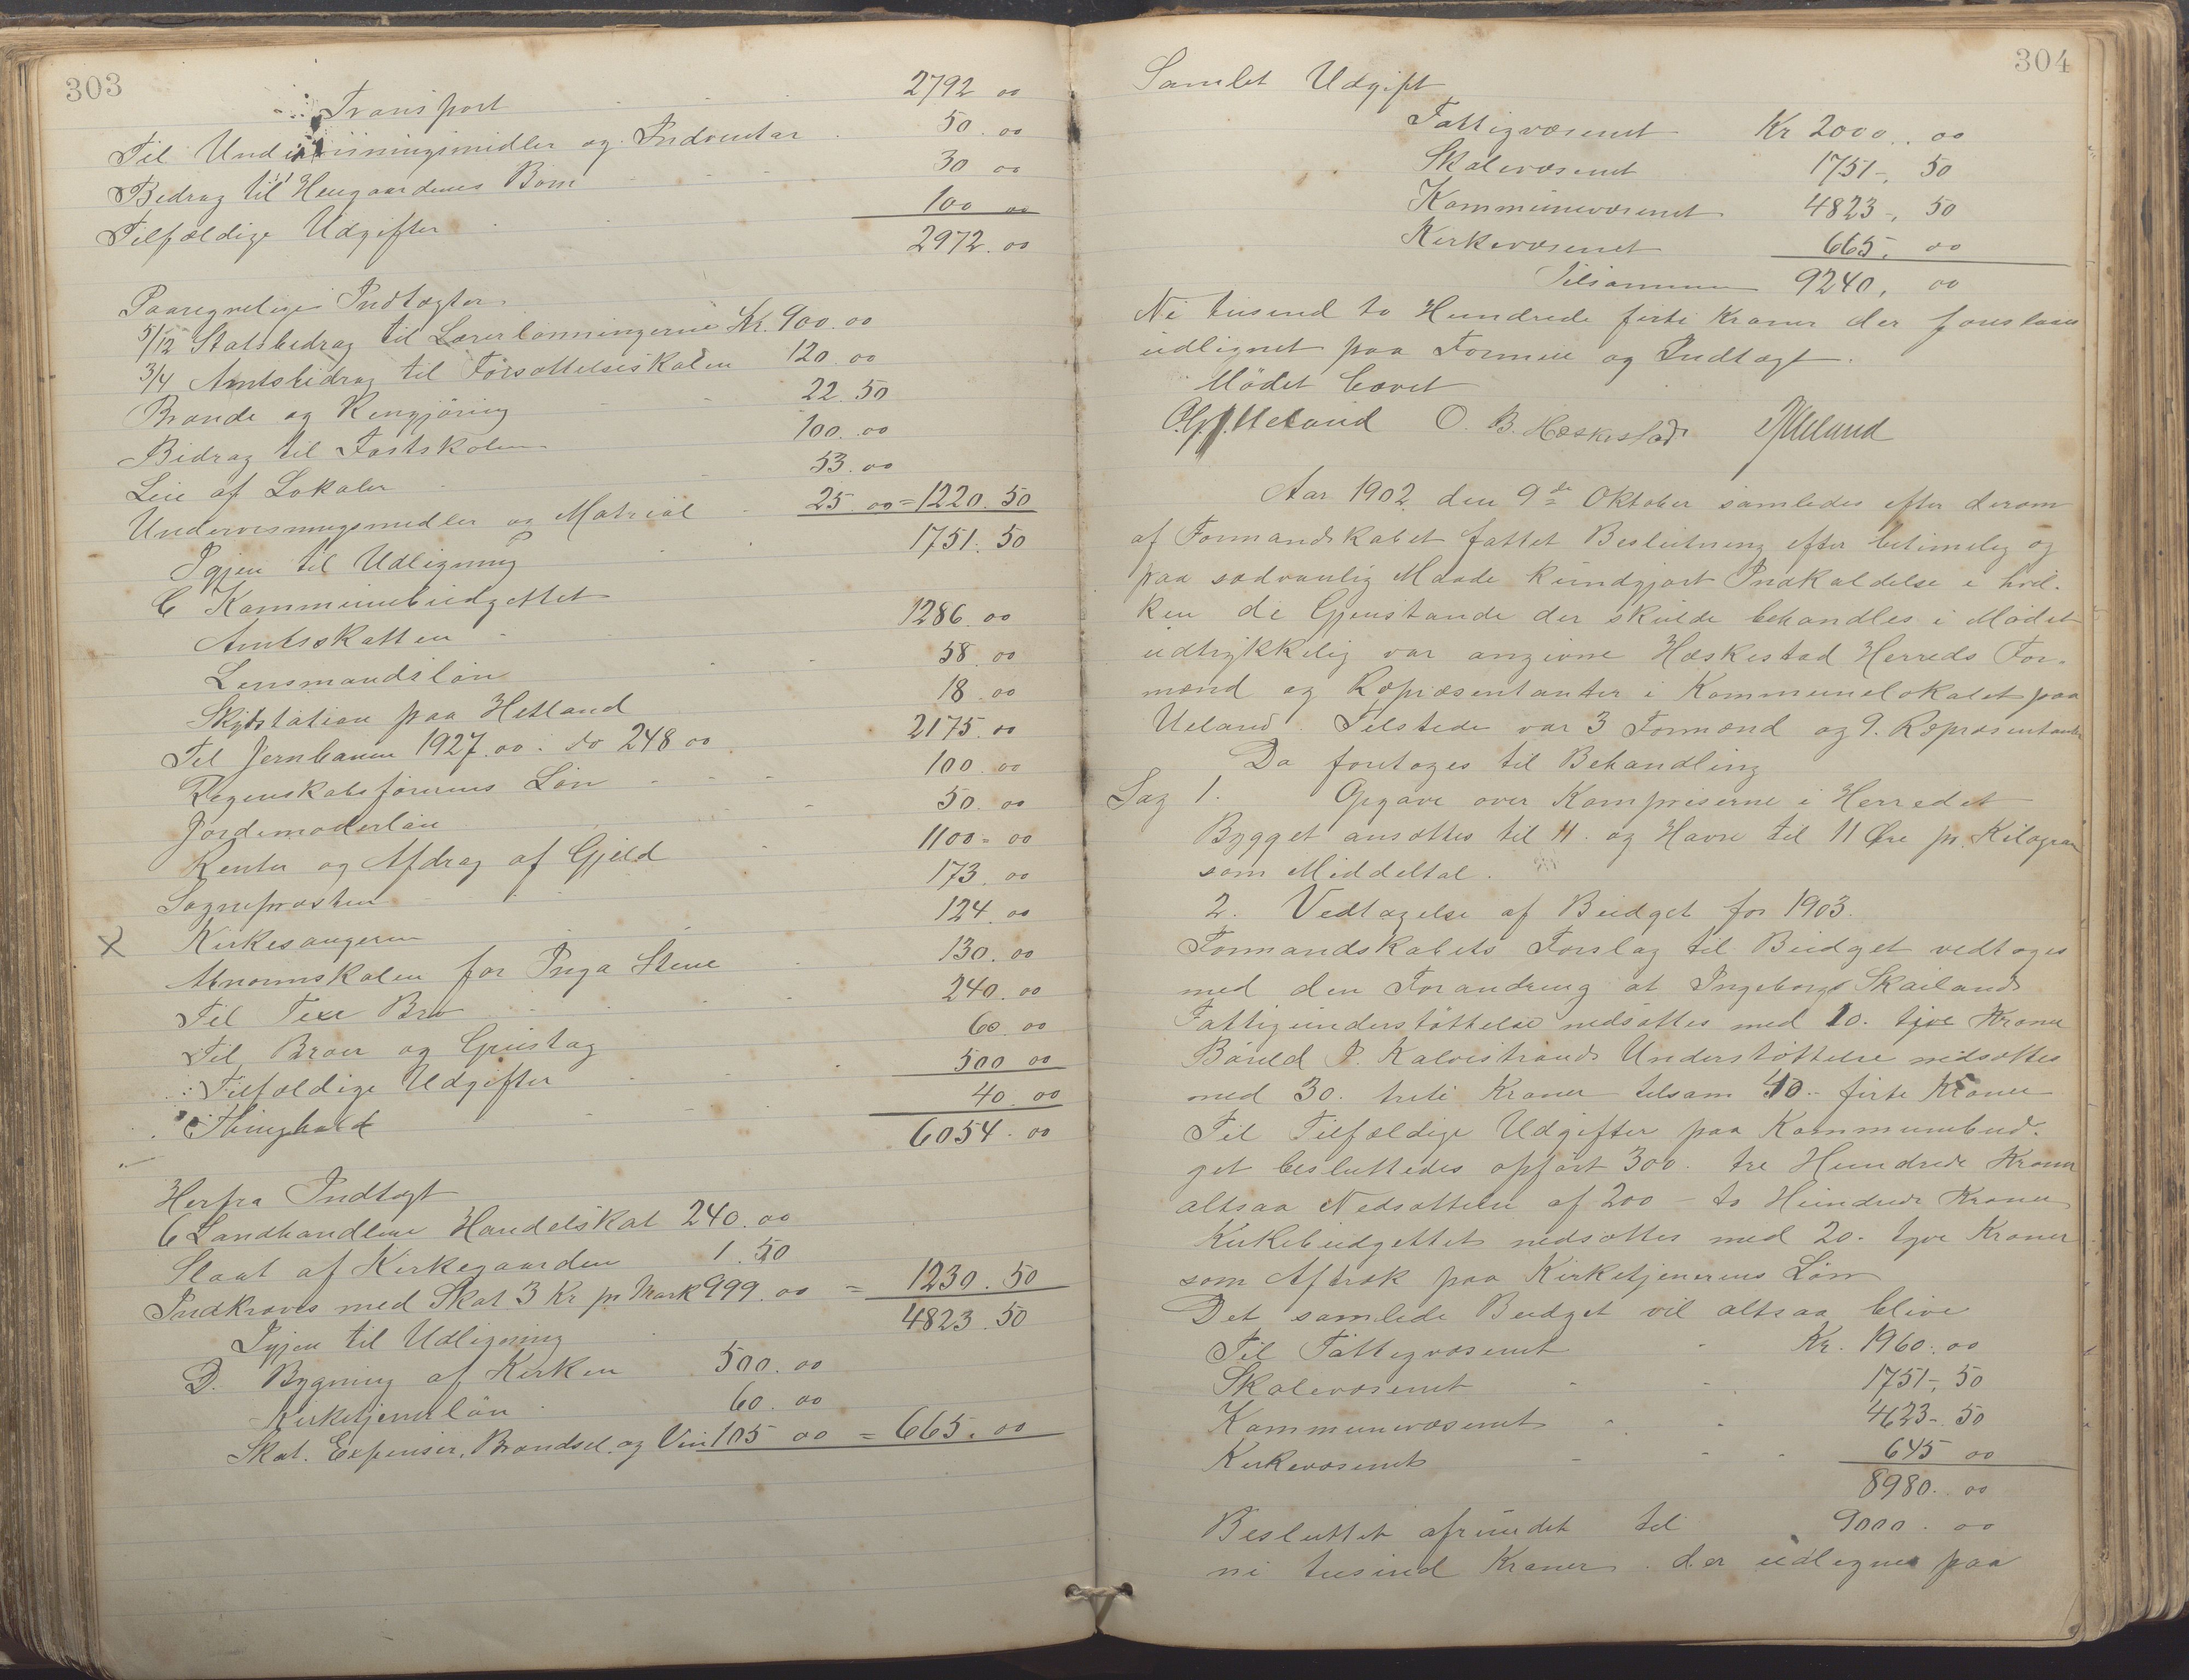 303
Transport 2792 00
Til Undervisningsmidler og Indventar 50.00
Bedrag til Heugaardenes Børn 30 00
Tilfældige Udgifter 100 00
2972.00
Paaregnelige Indtægter
5/12 Statsbedrag til Lærerlønningerne Kr. 900.00
3/4 Amtsbidrag til Forsættelsesskolen 120.00
Brænde og Rengjøring 22.50
Bidrag til Fastskolen 100.00
Leie af Lokaler 53.00
Undervisningsmedler og Matrial 25.00 = 1220.50
Igjen til Udligning 1751.50
C Kommunebudgettet
Amtsskatten 1286.00
Lensmandsløn 58.00
Skydsstation paa Hetland 18.00
Til Jernbanen 1927.00. do 248 00 2175.00
Regnskabsførerens Løn 100.00
Jordemoderløn 50.00
Renter og Afdrag af Gjeld 1100=00
Sognepræsten 173.00
X Kirkesangeren 124.00
Abnormskolen for Inga Stene 130.00
Til Bro 240.00
Til Broer og Gruestag 60.00
Tilfældige Udgifter 500 00
Thinghold 40.00
6054.00
Herfra Indtægt
6 Landhandlere Handelskat 240.00
Slaat af Kirkegaarden 1.50
Indkræves med Skat 3 Kr pr Mark 999.00 = 1230.50
Igjen til Udligning 4823.50
D. Bygning af Kirken 500.00
Kirketjenerløn 60.00
Skat. Expenser, Brændsel og Vin 105 00 = 665.00
304
Samlet Udgift
Fattigvæsenet Kr 2000..00
Skolevæsenet 1751-, 50
Kommunevæsenet 4823-, 50
Kirkevæsenet 665, 00
Tilsammen 9240, 00
Ni tusend to Hundrede førti Kroner der
udlignet paa Formue og Indtægt.
Mødet hævet
Ueland O. B. Hæskestad Ueland
Aar 1902 den 9de Oktober samledes efter derom
af Formandskabet fattet Beslutning efter betimelig og
paa sædvanlig Maade kundgjort Indkaldelse i hvil-
ken de Gjenstande der skulde behandles i Mødet
udtrykkelig var angivne Hæskestad Herreds For-
mænd og Repræsentanter i Kommunelokalet paa
Ueland. Tilstede var 3 Formænd og 9. Repræsentanter
Da foretoges til Behandling
Sag 1. Opgave over Kornpriserne i Herredet
Bygget ansættes til 11. og Havre til 11 Øre pr. Kilogram
som Middeltal.
2. Vedtagelse af Budget for 1903.
Formandskabets Forslag til Budget vedtoges
med den Forandring at Ingeborg Skailands
Fattigunderstøttelse nedsættes med 10. Kroner
Bårild P. Kalvistrands Understøttelse nedsættes
med 30. treti Kroner tilsam 40.. førti Kroner
Til Tilfældige Udgifter paa Kommunebud-
get besluttedes opført 300. tre Hundrede Kroner
altsaa Nedsættelse af 200 - to Hundrede Kroner
Kirkebudgettet nedsættes med 20. tyve Kroner
som Aftræk paa Kirketjenerens Løn
Det samlede Budget vil altsaa blive
Til Fattigvæsenet Kr. 1960.00
Skolevæsenet 1751-, 50
Kommunevæsenet 4623-. 50
Kirkevæsenet 645 00
8980.00
Besluttet afrundet til 9000.00
ni tusind Kroner. der udlignes paa